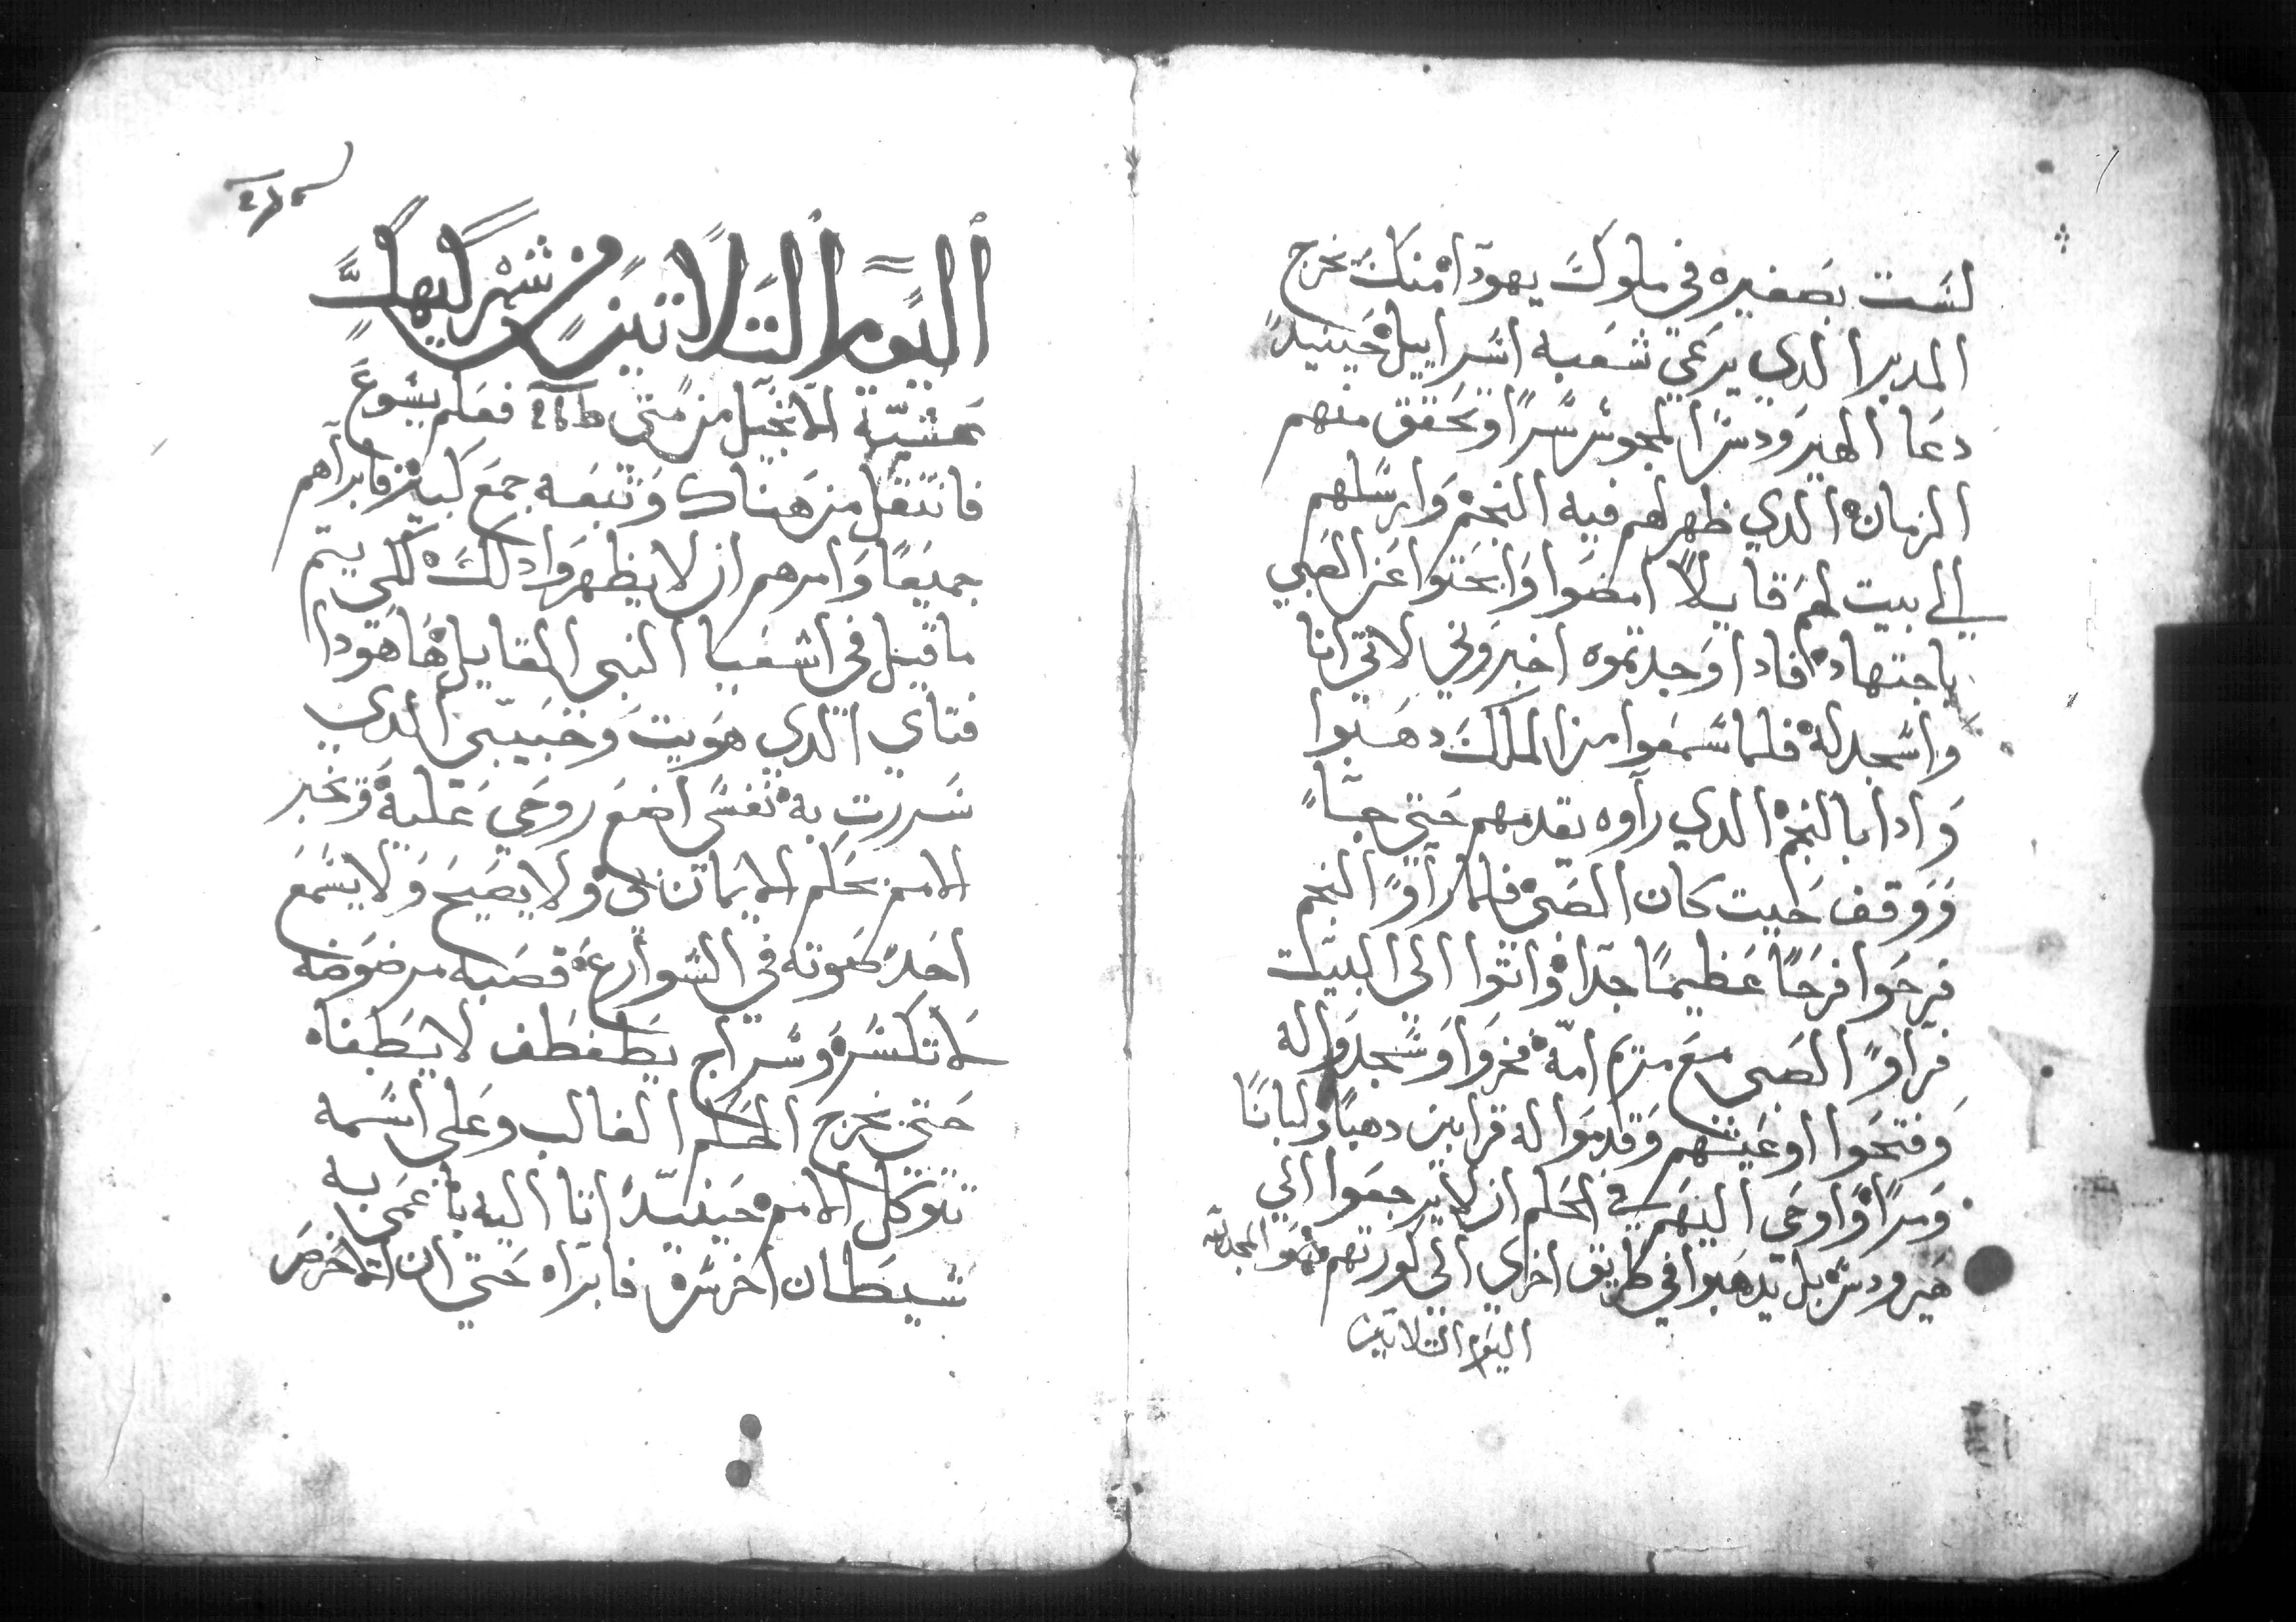 لست بصغيره في ملوك يهودا منك يخرج
المدبر الدي يرعي شعبه اسراييل حينيد
دعا الهيرودس المجوس سرا وتحقق منهم
الزمان الدي ظهر لهم فيه النجم وارسلهم
الي بيت لحم قايلا امضوا وابحتوا عن الصبي
باجتهاد فادا وجدتموه اخبروني لاتي انا
واسجد له فلما سمعوا من الملك دهبوا
وادا بالنجم الدي رآوه يقدمهم حتي جا
ووقف حيت كان الصبي فلما رآوا النجم
فرحوا فرحا عظيما جدا واتوا الي البيت
فرآوا الصبي مع مريم امه فخروا وسجدوا له
وفتحوا اوعيتهم وقدموا له قرابين دهبا ولبانا
ومرا واوحي اليهم في الحلم ان لا يرجعوا الي
هيرودس بل يدهبوا في طريق اخري الي كورتهم والمجد لله
اليوم التلاتين
اليوم التلاتين من شهر كيهك
عشية الانجيل من متي ط 26 فعلم يسوع
فانتقل من هناك وتبعه جمع كبير فابراهم
جميعا وامرهم ان لا يظهروا دلك لكي يتم
ما قيل في اشعيا النبي القايل ها هودا
فتاي الدي هويت وحبيبي الدي
سررت به نفسي اضع روحي عليه ويخبر
الامم بحكم لا يماري ولا يصيح ولا يسمع
احد صوته في الشوارع قصبه مرضوضه
لا تكسر وسراج يطفطف لا يطفاه
حتي يخرج الحكم الغالب وعلي اسمه
تتوكل الامم حينيد اتا اليه باعمي به
شيطان اخرس فابراه حتي ان الاخرس